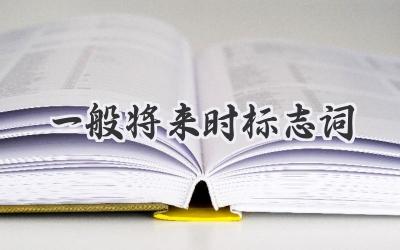 一般将来时标志词